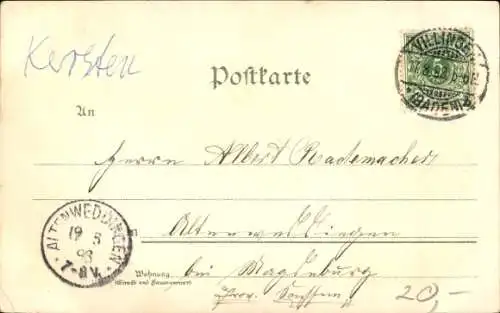 Kersten
VILLINGEN
5
(BADEN)
Postkarte
An
Herrn Albert Rademacher
ALTENWEDDINGEN
19 5
98
7-8V.
in
Altenweddingen
Wohnung
(Straße und Hausnummer)
bei Magdeburg
Prov. Sachsen
20,-